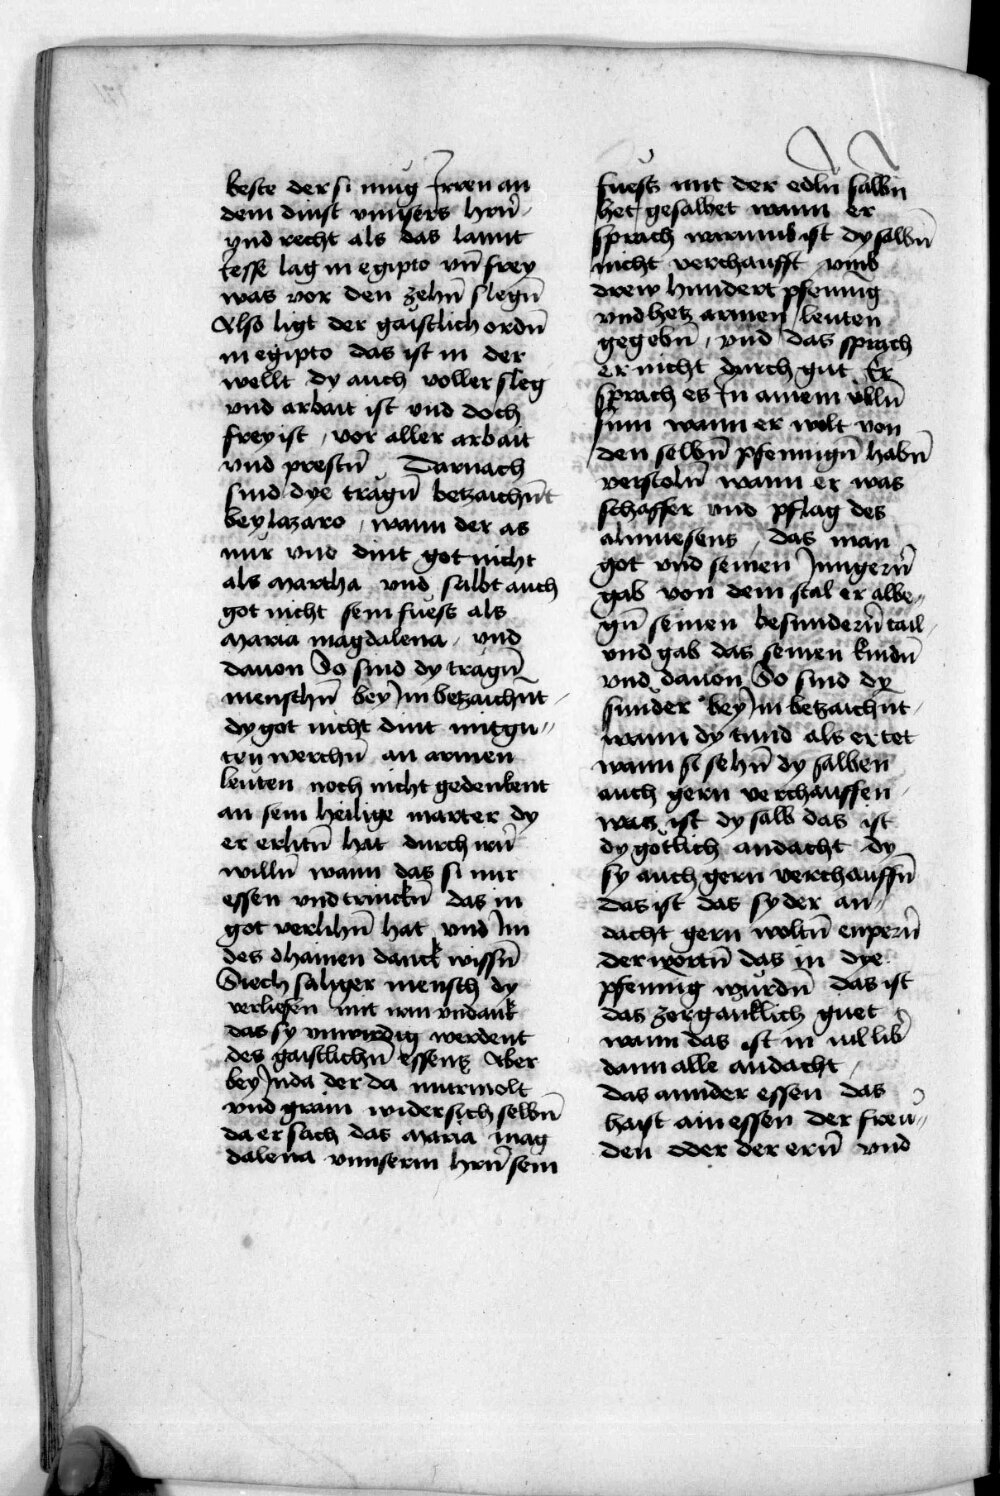 beste der si mug Irren an
dem dinst vnnsers hrn̄
vnd recht als das lannt
Iesse lag in egipto vn̄ frey
was vor den zehn̄ slegn̄
Also ligt der gaistlich ordn̄
in egipto das ist in der
wellt dy auch voller sleg
vnd arbait ist vnd doch
frey ist / vor aller arbait
vnd prestn̄ Darnach
sind dye trägn̄ betzaichn̄t
bey lazaro / wann der as
nür vnd dint got nicht
als Martha vnd salbt auch
got nicht sein fuess als
Maria magdalena / vnd
dauon So sind dy trägn̄
menschn̄ bey Im betzaichnt /
dy got nicht dint mit gu=
ten werchn̄ an armen
leuten noch nicht gedenkent
an sein heilige marter dy
er erlitn̄ hat durch irn̄
willn̄ wann das si nur
essen vnd trinckn̄ das in
got verlihn̄ hat vnd Im
des dhainen danck wissn̄
Siech saliger mensch dy
verliesen mit irm vndank
das sy vnwirdig werdent
des gaistlichn̄ essens Aber
bey Juda der da murmolt
vnd grain wider sich selbn̄
da er sach das Maria mag
dalena vnnserm hrn̄ sein
fuess mit der edln̄ salbn̄
het gesalbet wann er
sprach warumb ist dy salbn̄
nicht verchaufft vmb
drew hundert pfenning
vnd hetz armen leuten
gegebn̄ / vnd das sprach
er nicht durch gut Er
sprach es In ainem vbln̄
sinn wann er wolt von
den selbn̄ pfennign̄ habn̄
verstoln̄ wann er was
schaffer vnd pflag des
almuesens / das man
got vnd seinen Jungern̄
gab von dem stal er albe=
gn̄ seinen besundern̄ tail /
vnd gab das seinen kindn̄
vnd dauon So sind dy
sunder bey Im betzaichnt /
wann dy tund als er tet
wann si sehn̄ dy salben
auch gern verchauffen /
was ist dy salb das ist
dy götlich andacht dy
sy auch gern verchauffn̄
das ist das sy der an=
dacht gern woltn̄ enpern̄
der wortn̄ das in dye
pfennig wurdn̄ das ist
das zergancklich guet
wann das ist in vil lib̄
dann alle andacht /
das annder essen das
haist ain essen der freu=
den oder der ern̄ vnd